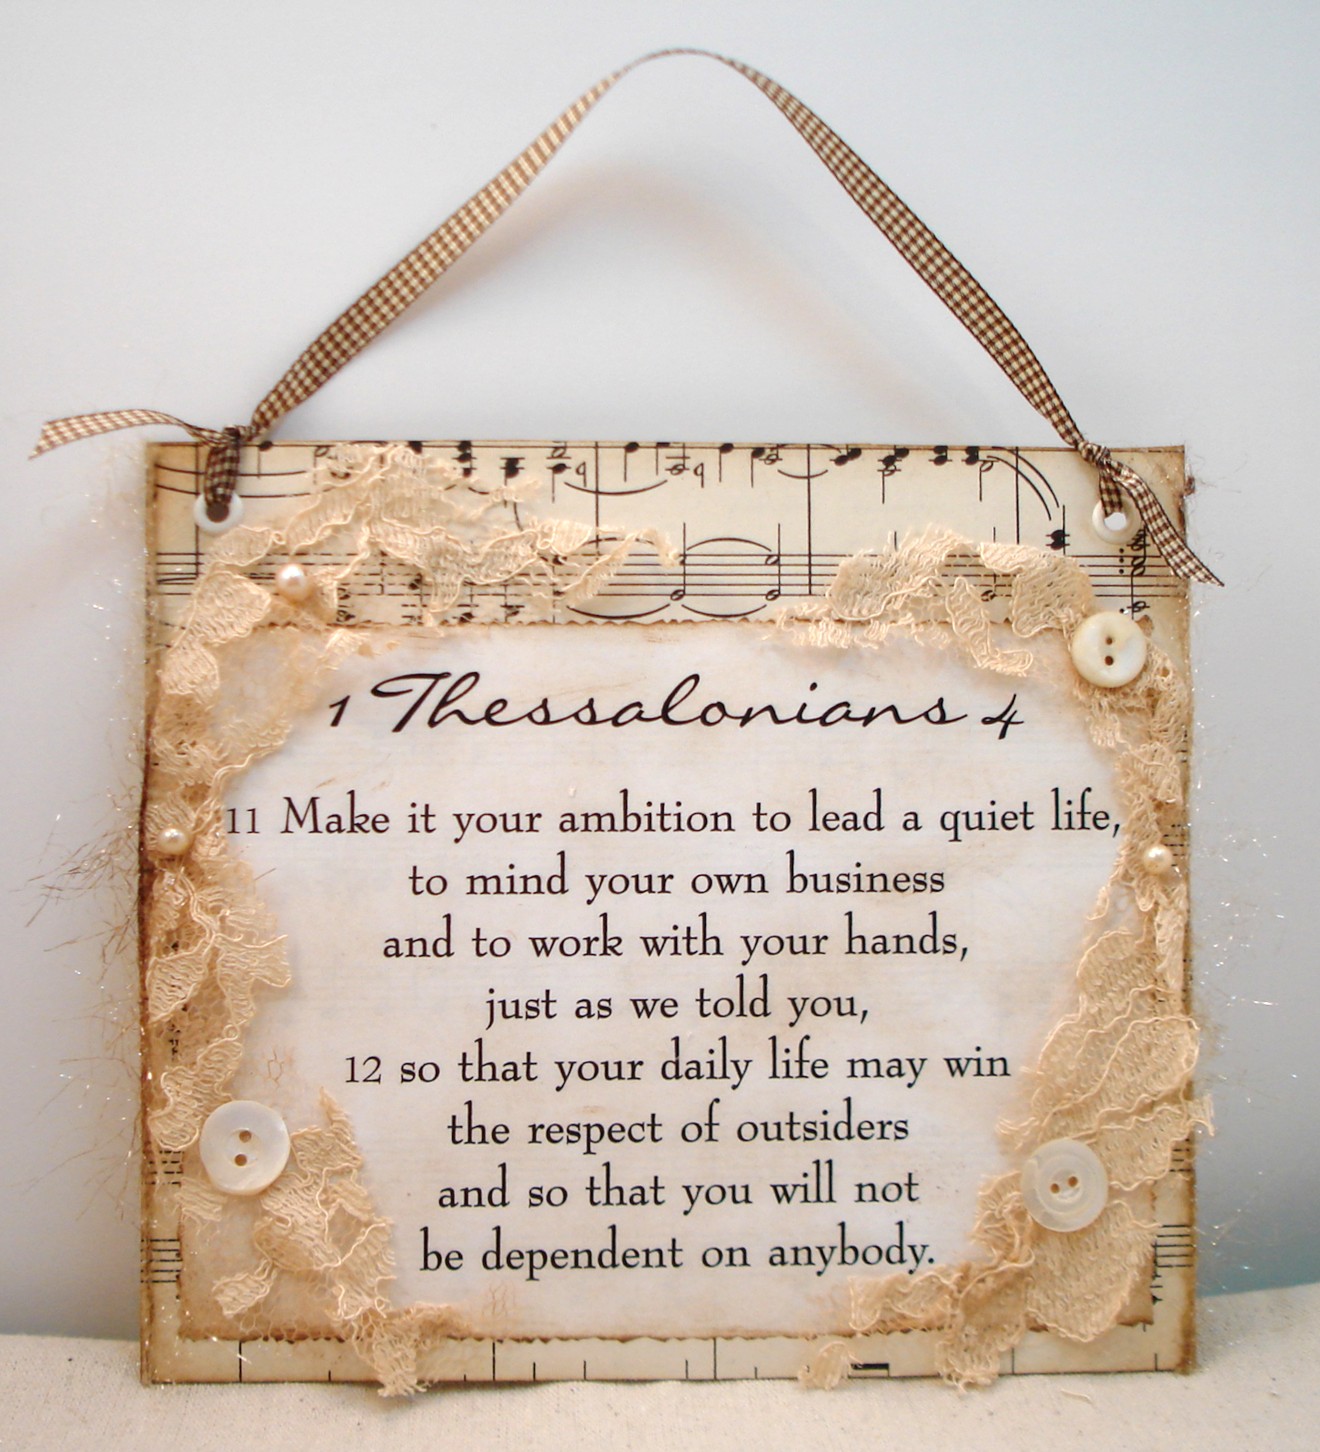 1 Thessalonians 4
11 Make it your ambition to lead a quiet life,
to mind your own business
and to work with your hands,
just as we told you,
12 so that your daily life may win
the respect of outsiders
and so that you will not
be dependent on anybody.